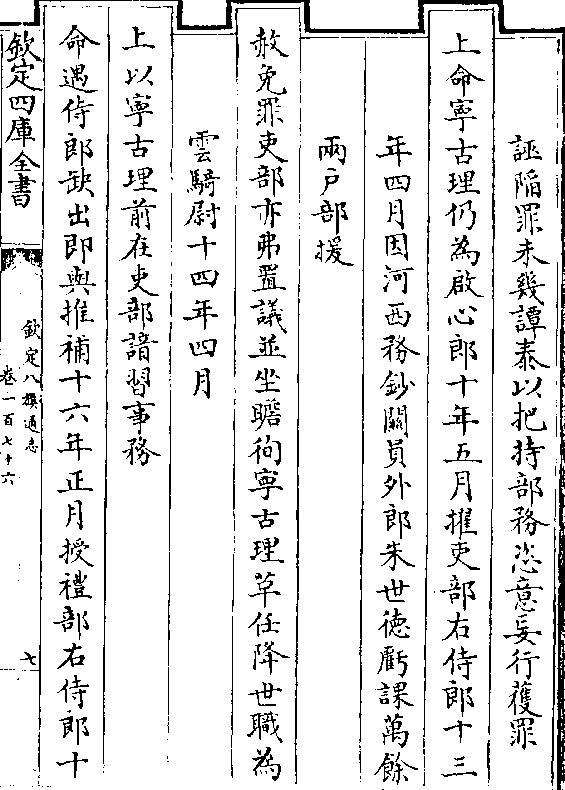 誣陷罪未幾譚泰以把持部務恣意妄行獲罪
上命寧古理仍為啟心郎十年五月擢吏部右侍郎十三
年四月因河西務鈔關員外郎朱世德虧課萬餘
兩戶部援
赦免罪吏部亦弗置議並坐瞻徇寧古理革任降世職為
雲騎尉十四年四月
上以寧古理前在吏部諳習事務
命遇侍郎缺出即與推補十六年正月授禮部右侍郎十
欽定四庫全書
欽定八旗通志
卷一百七十六
七